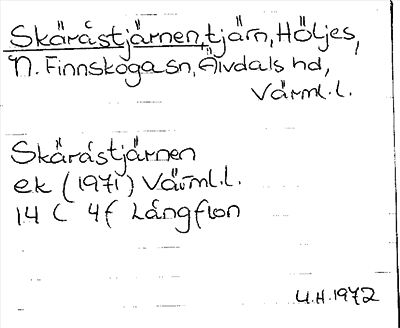 Skäråstjärnen, tjärn, Höljes,
N. Finnskoga sn, Älvdals hd,
Värml.l.
Skäråstjärnen
ek (1971) Värml.l.
14 C 4f Långflon
U.H.1972